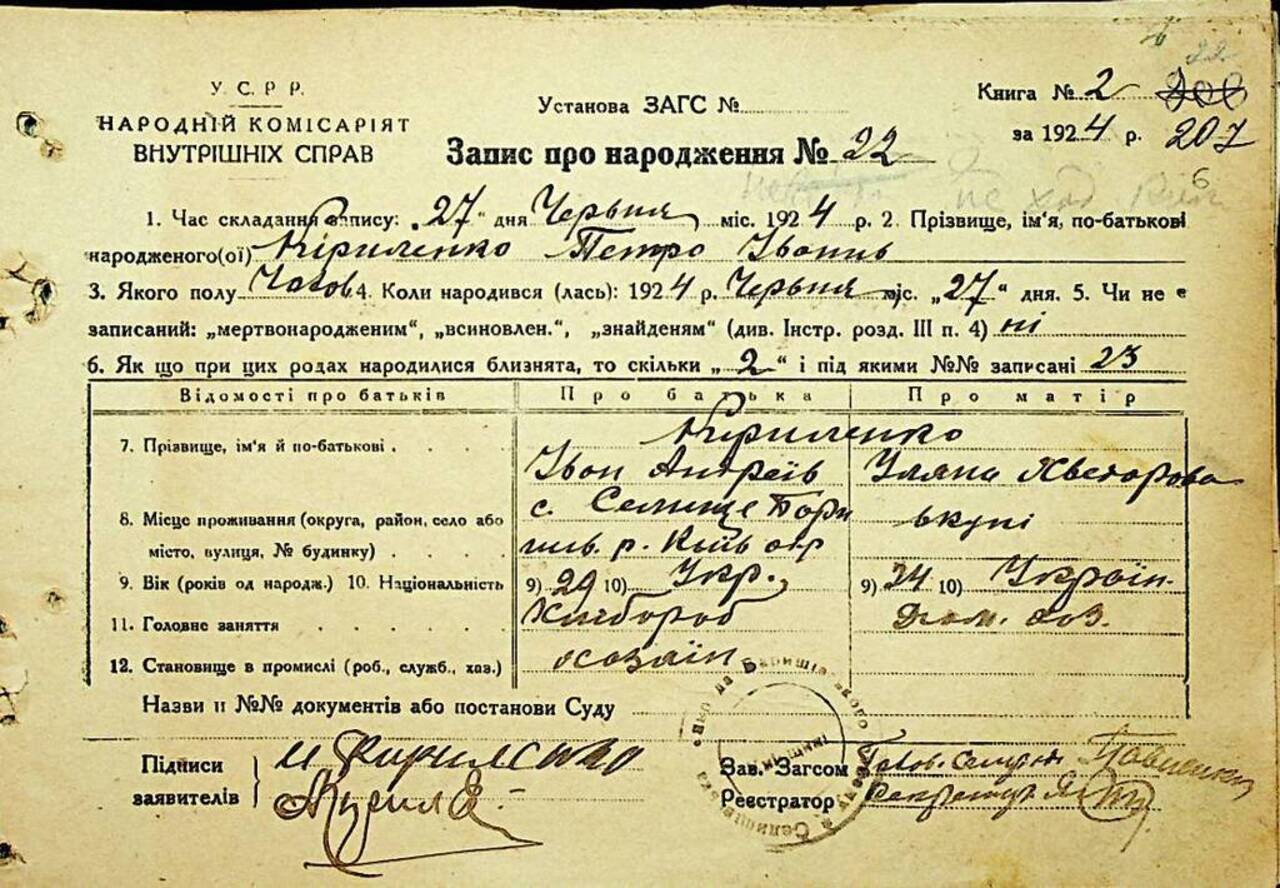 У. С. Р. Р.
НАРОДНІЙ КОМІСАРІЯТ
ВНУТРІШНІХ СПРАВ
Установа ЗАГС №
Запис про народження № 22
22
Книга № 2
за 1924 р. 207
6
1. Час складання запису: „27“ дня Червня міс. 1924 р. 2. Прізвище, ім'я, по-батькові
народженого(ої) Кіриленко Петро Іванів
3. Якого полу Чолов. 4. Коли народився (лась): 1924 р. Червня міс. „27“ дня. 5. Чи не є
записаний: „мертвонародженим“, „всиновлен.“, „знайденям“ (див. Інстр. розд. III п. 4) ні
6. Як що при цих родах народилися близнята, то скільки „2“ і під якими №№ записані 23
Відомості про батьків Про батька Про матір
7. Прізвище, ім'я й по-батькові Кіриленко
Іван Андреїв Уляна
8. Місце проживання (округа, район, село або
місто, вулиця, № будинку)
с. Селище Бори
шів. р. Київ окр
вкупі
9. Вік (років од народж.) 10. Національність 9) 29 10) Укр. 9) 24 10) Україн.
11. Головне заняття Хлібороб Дом. хоз.
12. Становище в промислі (роб., служб., хаз.) хозяїн
Назви и №№ документів або постанови Суду
Підписи
заявителів
Зав. Загсом Голов.
Реєстратор Секретар